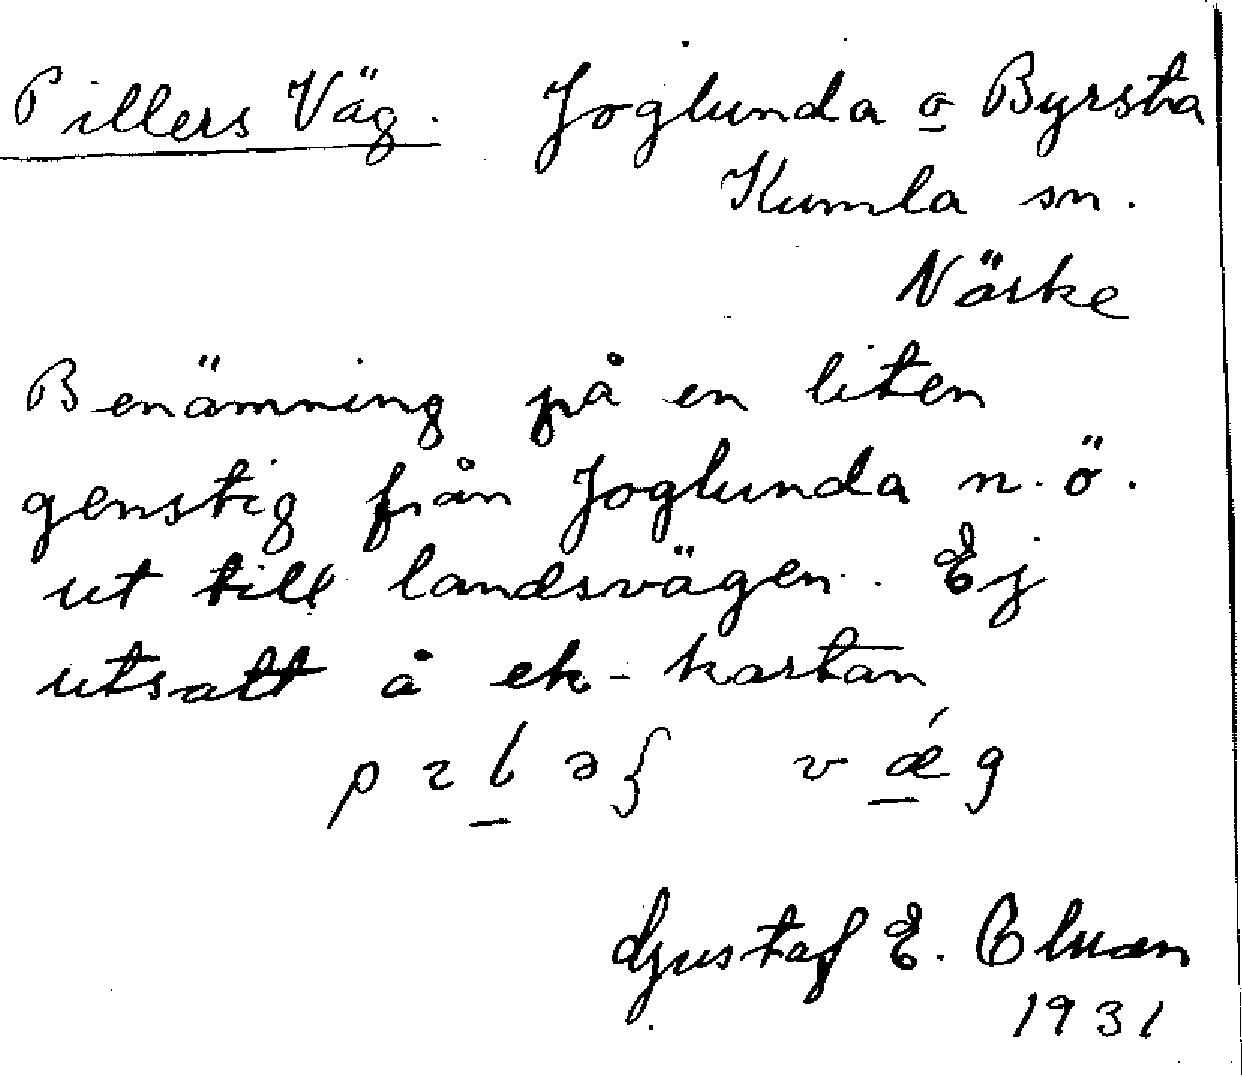 Pillers Väg. Joglunda o Byrsta
Kumla sn.
Närke
Benämning på en liten
genstig från Joglunda n.ö.
ut till landsvägen. Ej
utsatt å ek-kartan
Gustaf E.
1931